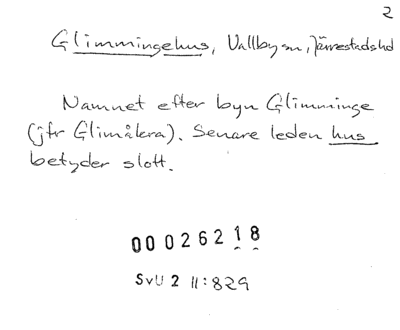 2
Glimmingehus, Vallby sn, Järrestads hd
Namnet efter byn Glimminge
(jfr Glimåkra). Senare leden hus
betyder slott.
00026218
SvU 2 11:829